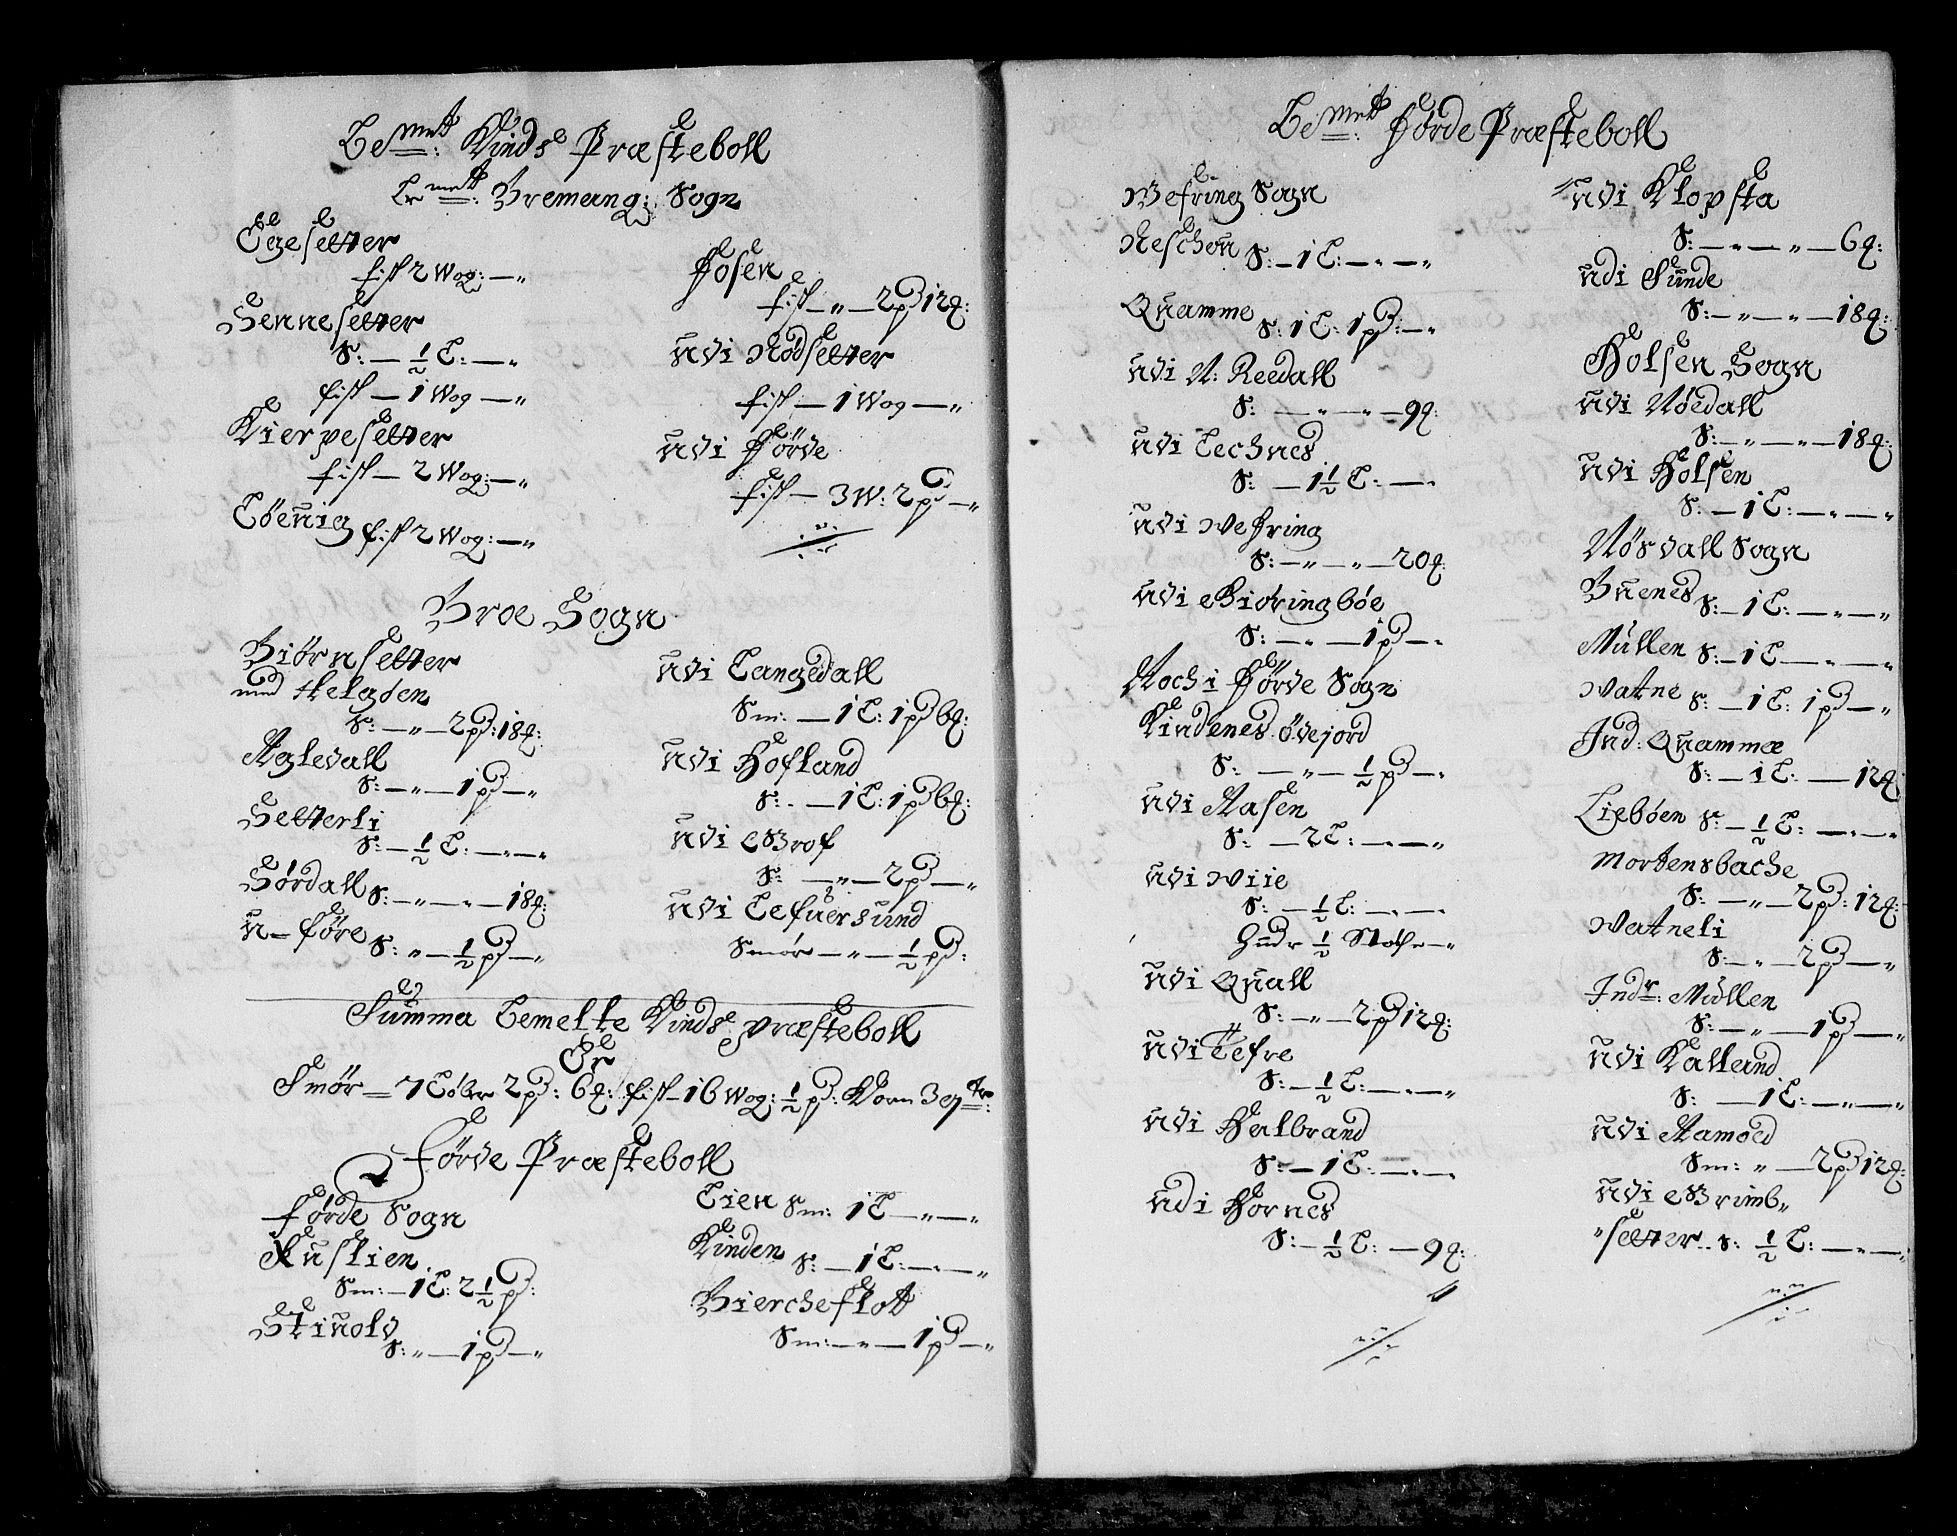 Bemtt: Kinds Præsteboll
Bemtt: Bremang: Sogn
Egesetter
fisk 2 Wog: — „
Sennesetter
S: — 1/2 L: — „
fisk — 1 Wog — „
Kierpesetter
fisk — 2 Wog: — „
Løeuig fisk 2 Wog: — „
Hosen
fisk — „ — 2 pd 12 q:
udi Nodsetter
fisk — 1 Wog — „
udi Førde
fisk — 3 W: 2 pd — „
Broe Sogn
Biørnsetter
med Helgøen
S: — „ — 2 pd: 18 q:
Agledall
S: — „ — 1 pd — „
Setterli
S: — 1/2 L: — „ — „
Sørdall S: — „ — „ — 18 q:
u- føre S: „ — 1/2 pd — „
udi Langedall
Sm: — 1 L: 1 pd 6 q:
udi Hofland
S: — 1 L: 1 pd 6 q:
udi Grof
S: — „ — 2 pd — „
udi Lefuersund
Smør — „ — 1/2 pd:
Summa bemelte Kinds præsteboll
Er
Smør — 7 Løber 2 pd: 6 q: fisk 16 Wog: 1/2 pd: Korn 3
Førde Præsteboll
Førde Sogn
Kuslien
Sm: — 1 L: 2 1/2 pd:
Stinold
S: „ — 1 pd — „
Lien Sm: 1 L — „ — „
Kinden S: — 1 L: — „ — „
Biercheflott
Sm: — „ — 1 pd — „
Bemtt: Førde Præsteboll
Wefring Sogn
Neschen S: — 1 L: — „ — „
Quamme S: 1 L: 1 pd: — „
udi N: Reedall
S: — „ — „ — 9 q:
udi Lechnes
S: — 1 1/2 L: — „
udi Wefring
S: — „ — „ — 20 q:
udi Gioringbøe
S: — „ — 1 pd — „
Noch i Førde Sogn
Kindenes Ødejord
S: — „ — 1/2 pd — „
udi Aasen
S: — 2 L: — „ — „
udi Wiie
S: — 1/2 L: — „ — „
Hudr 1/2
udi Quall
S: — „ — 2 pd 12 q:
udi Tefre
S: — 1/2 L: — „ — „
udi Halbrand
S: — 1 L: — „ — „
udi Hornes
S: — 1/2 L: — 9 q:
udi Klopsta
S: — „ — „ — 6 q:
udi Sunde
S: — „ — „ — 18 q:
Holsen Sogn
udi Nøedall
S: — „ — „ — 18 q:
udi Holsen
S: — 1 L: — „ — „
Nøsdall Sogn
Buenes S: — 1 L: — „ — „
Müllen S: — 1 L — „ — „
Watne S: — 1 L: 1 pd — „
Ind: Quammæ
S: — 1 L: — 12 q:
Liebøen S: — 1/2 L: — „ — „
Mortensbache
S: — „ — 2 pd: 12 q:
Watneli
S: — „ — 2 pd — „
Indr: Müllen
S: — „ — 1 pd — „
udi Kalland
S: — 1 L: — „ — „
udi Aamoed
Sm: „ — 2 pd 12 q:
udi Grimb„
„setter S: 1/2 L: — „ — „